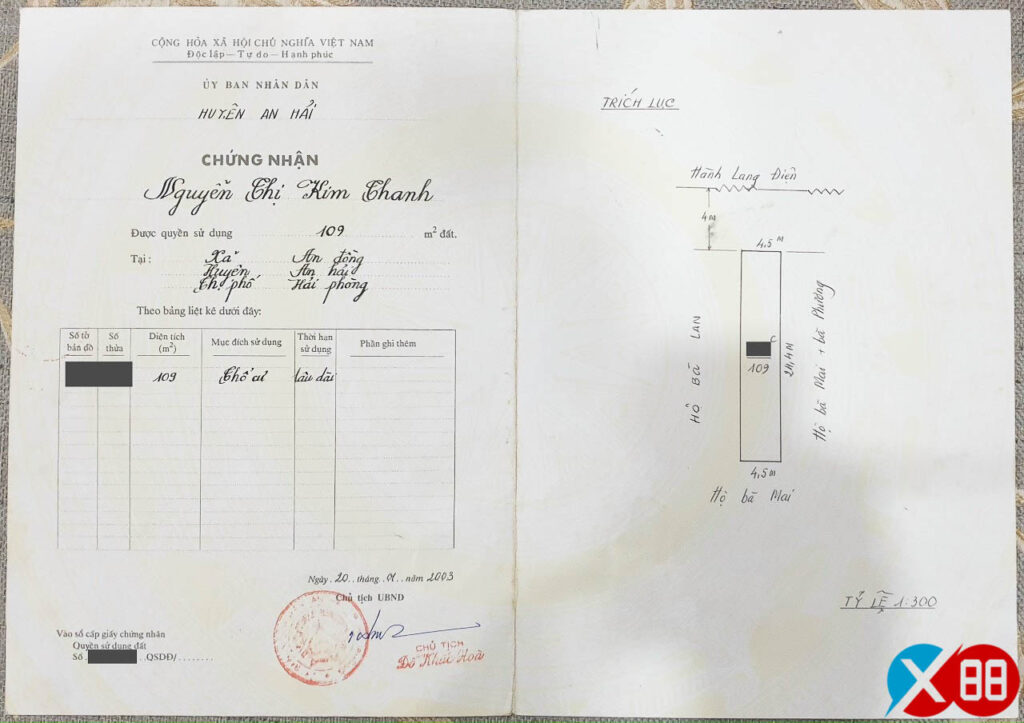 CỘNG HÒA XÃ HỘI CHỦ NGHĨA VIỆT NAM
Độc lập — Tự do — Hạnh phúc
ỦY BAN NHÂN DÂN
HUYỆN AN HẢI
CHỨNG NHẬN
Nguyễn Thị Kim Thanh
Được quyền sử dụng 109 m² đất.
Tại: Xã An đồng
Huyện An hải
Th. phố Hải phòng
Theo bảng liệt kê dưới đây:
Số tờ bản đồ Số thửa Diện tích (m²) Mục đích sử dụng Thời hạn sử dụng Phần ghi thêm
109 Thổ cư lâu dài
Ngày 20 tháng 01 năm 2003
Chủ tịch UBND
CHỦ TỊCH
Đỗ Khắc Hoà
Vào sổ cấp giấy chứng nhận
Quyền sử dụng đất
Số QSDĐ/
TRÍCH LỤC
Hành Lang Điện
4M
4.5 M
HỘ BÀ LAN
C
109
24,4M
Hộ bà Mai + bà Phương
4,5M
Hộ bà Mai
TỶ LỆ 1:300
X88